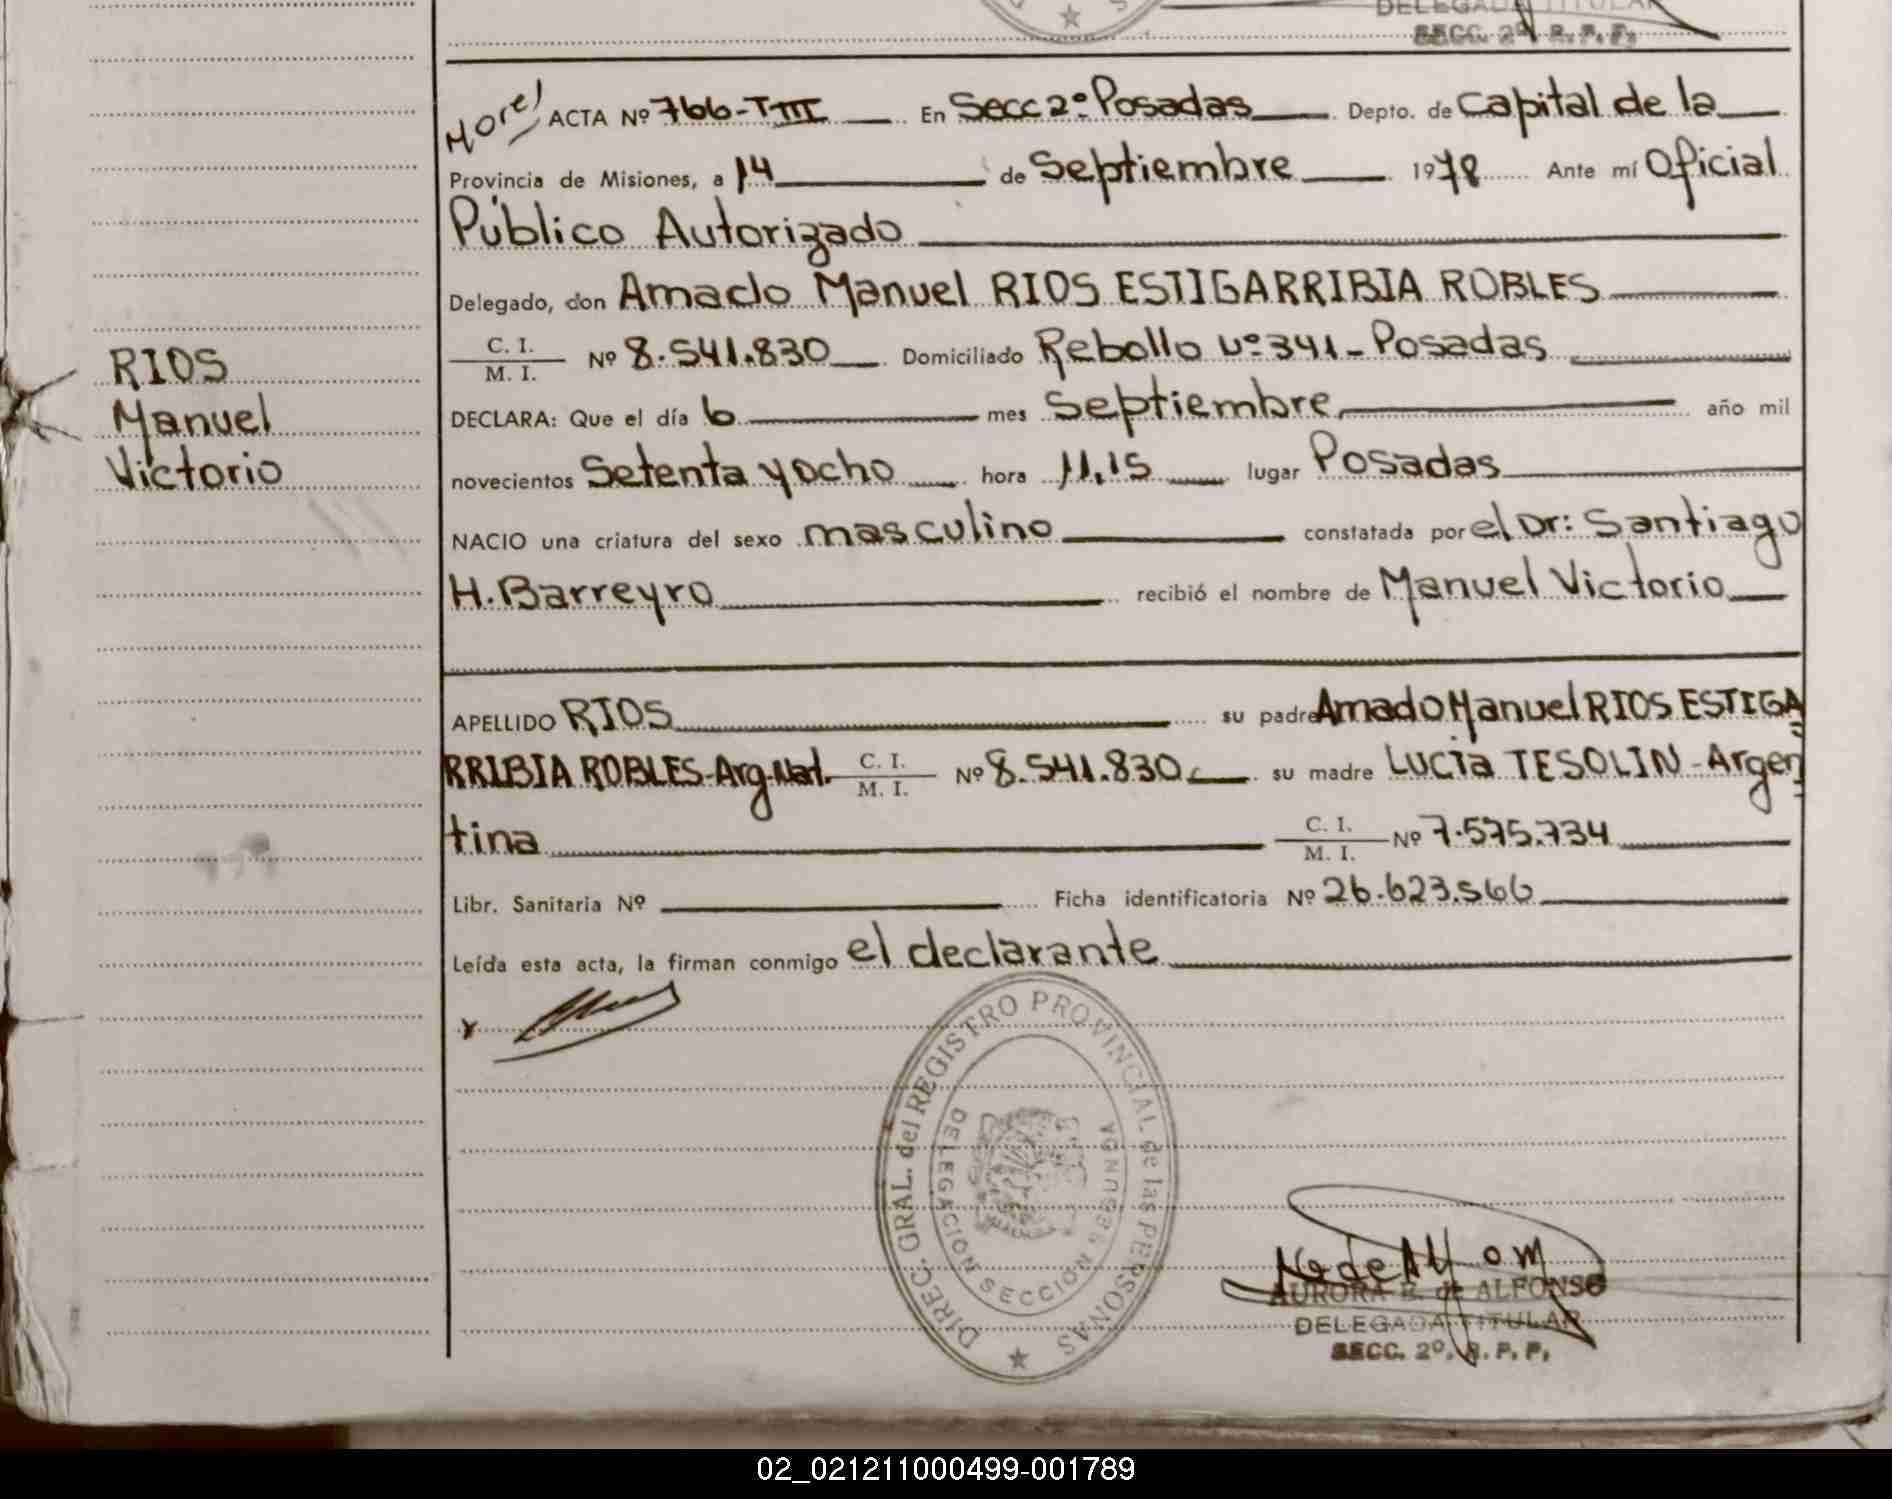 DELEGADA TITULAR
SECC. 2º R. P. P.
Morel ACTA Nº 766-TIII En Secc 2º Posadas Depto. de Capital de la
Provincia de Misiones, a 14 de Septiembre 1978 Ante mí Oficial
Público Autorizado
Delegado, don Amado Manuel RIOS ESTIGARRIBIA ROBLES
C. I. / M. I. Nº 8.541.830 Domiciliado Rebollo Nº 341 - Posadas
RIOS
Manuel
Victorio
DECLARA: Que el día 6 mes Septiembre año mil
novecientos Setenta y ocho hora 11,15 lugar Posadas
NACIO una criatura del sexo masculino constatada por el Dr: Santiago
H. Barreyro recibió el nombre de Manuel Victorio
APELLIDO RIOS su padre Amado Manuel RIOS ESTIGA
RRIBIA ROBLES-Arg.Nat. C. I. / M. I. Nº 8.541.830 su madre Lucía TESOLIN - Argen
tina C. I. / M. I. Nº 7.575.734
Libr. Sanitaria Nº Ficha identificatoria Nº 26.623.566
Leída esta acta, la firman conmigo el declarante
x
DIREC. GRAL. del REGISTRO PROVINCIAL de las PERSONAS
DELEGACION SECCION SEGUNDA
AURORA R. de ALFONSO
DELEGADA TITULAR
SECC. 2º. R. P. P.
02_021211000499-001789